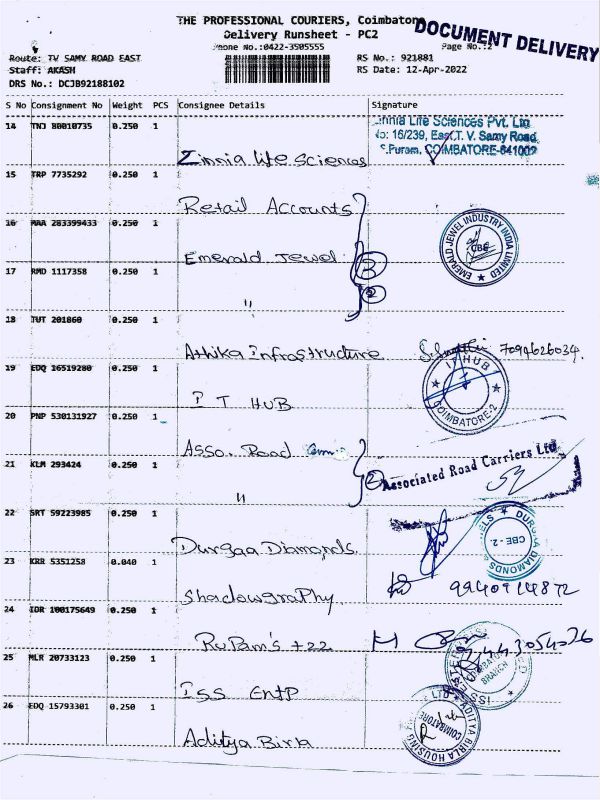 THE PROFESSIONAL COURIERS, Coimbatore
Delivery Runsheet - PC2
DOCUMENT DELIVERY
Phone No.:0422-3505555
Page No.:2
Route: TV SAMY ROAD EAST
RS No.: 921881
Staff: AKASH
RS Date: 12-Apr-2022
DRS No.: DCJB92188102
S No Consignment No Weight PCS Consignee Details Signature
14 TNJ 80010735 0.250 1
Zinnia Life Sciences Pvt. Ltd
No: 16/239, East T. V. Samy Road
S.Puram, COIMBATORE-641002
Zinnia Life Sciences
15 TRP 7735292 0.250 1
Retail Accounts
16 MAA 283399433 0.250 1
EMERALD JEWEL INDUSTRY INDIA LIMITED
CBE
Emerald Jewel
3
17 RMD 1117358 0.250 1
"
2
18 TUT 201860 0.250 1
Athika Infrastructure 7094626034.
19 EDQ 16519280 0.250 1
IT HUB
COIMBATORE-2
I T HUB
20 PNP 530131927 0.250 1
Asso. Road
Associated Road Carriers Ltd
21 KLM 293424 0.250 1
"
2
22 SRT 59223985 0.250 1
DURGAA DIAMONDS
CBE - 2
Durgaa Diamonds
23 KRR 5351258 0.040 1
9940914872
Shadowgraphy
24 IDR 100175649 0.250 1
Rupam's +22
25 MLR 20733123 0.250 1
BRANCH
ISS Entp
26 EDQ 15793301 0.250 1
ADITYA BIRLA HOUSING
COIMBATORE
Aditya Birla